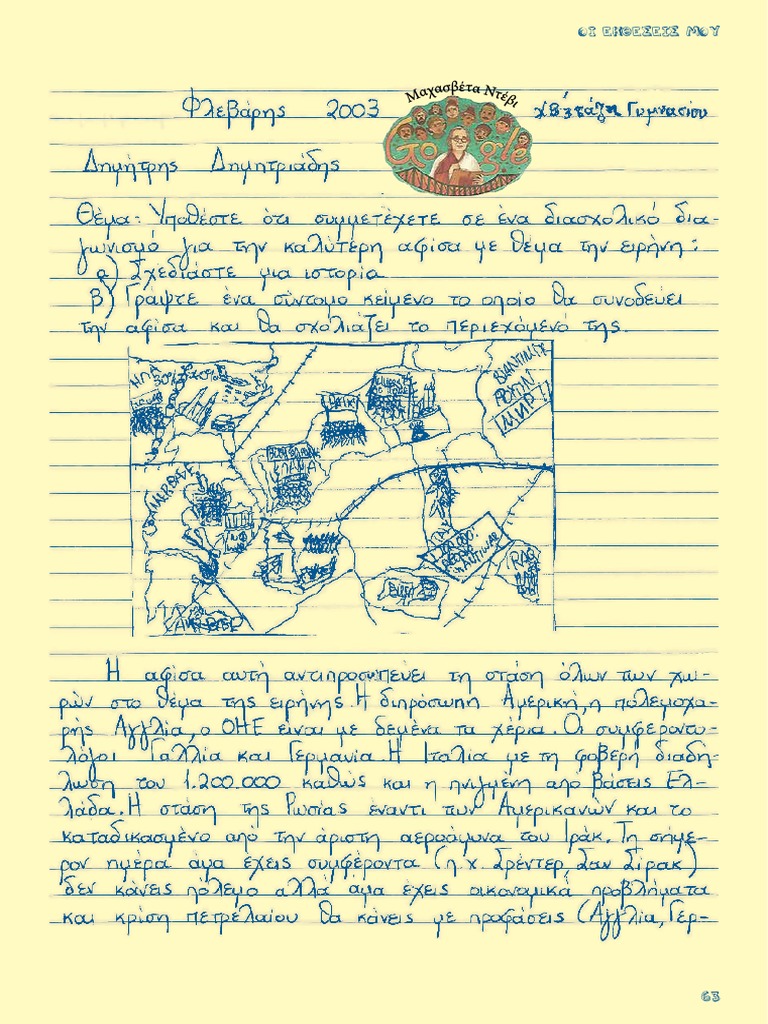 ΟΙ ΕΚΘΕΣΕΙΣ ΜΟΥ
Φλεβάρης 2003
Μαχασβέτα Ντέβι
Google
τάξη Γυμνασίου
Δημήτρης Δημητριάδης
Θέμα: Υποθέστε ότι συμμετέχετε σε ένα διασχολικό δια-
γωνισμό για την καλύτερη αφίσα με θέμα την ειρήνη:
α) Σχεδιάστε μια ιστορία
β) Γράψτε ένα σύντομο κείμενο το οποίο θα συνοδεύει
την αφίσα και θα σχολιάζει το περιεχόμενό της.
ΗΠΑ
ΜΙΡ
Η αφίσα αυτή αντιπροσωπεύει τη στάση όλων των χω-
ρών στο θέμα της ειρήνης. Η διπρόσωπη Αμερική, η πολεμοχα-
ρής Αγγλία, ο ΟΗΕ είναι με δεμένα τα χέρια. Οι συμφεροντο-
λόγοι Γαλλία και Γερμανία. Η Ιταλία με τη φοβερή διαδή-
λωση του 1.200.000 καθώς και η πνιγμένη από βάσεις Ελ-
λάδα. Η στάση της Ρωσίας έναντι των Αμερικανών και το
καταδικασμένο από την άριστη αεροάμυνα του Ιράκ. Τη σήμε-
ρον ημέρα άμα έχεις συμφέροντα (π.χ. Σρέντερ, Ζαν Σιράκ)
δεν κάνεις πόλεμο αλλά άμα έχεις οικονομικά προβλήματα
και κρίση πετρελαίου θα κάνεις με προφάσεις (Αγγλία, Γερ-
63